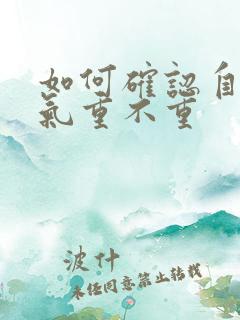 如何確認自
氣重不重
波什
未经同意禁止转载